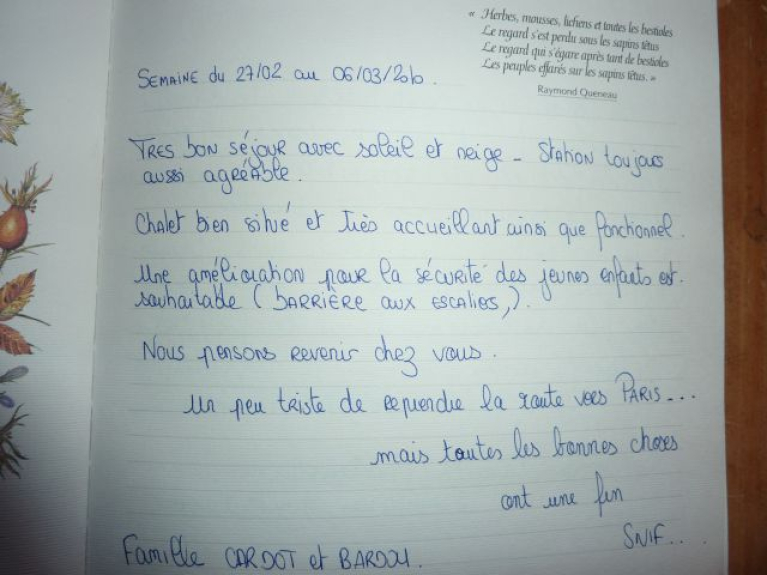 « Herbes, mousses, lichens et toutes les bestioles
Le regard s'est perdu sous les sapins têtus
Le regard qui s'égare après tant de bestioles
Les peuples effarés sur les sapins têtus. »
Raymond Queneau
SEMAINE du 27/02 au 06/03/2010.
TRES bon séjour avec soleil et neige - Station toujours
aussi agréable.
Chalet bien situé et très accueillant ainsi que fonctionnel.
Une amélioration pour la sécurité des jeunes enfants est
souhaitable (BARRIÈRE aux escaliers,).
Nous pensons revenir chez vous.
un peu triste de reprendre la route vers PARIS...
mais toutes les bonnes choses
ont une fin
SNIF...
Famille CARDOT et